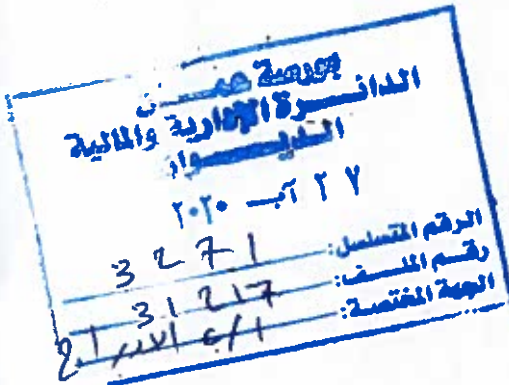 بورصة عمــــان
الدائــــرة الإدارية والمالية
الديـــــوان
٢٧ آب ٢٠٢٠
الرقم المتسلسل: 3271
رقـــم الملـــف: 31217
الجهة المختصة: